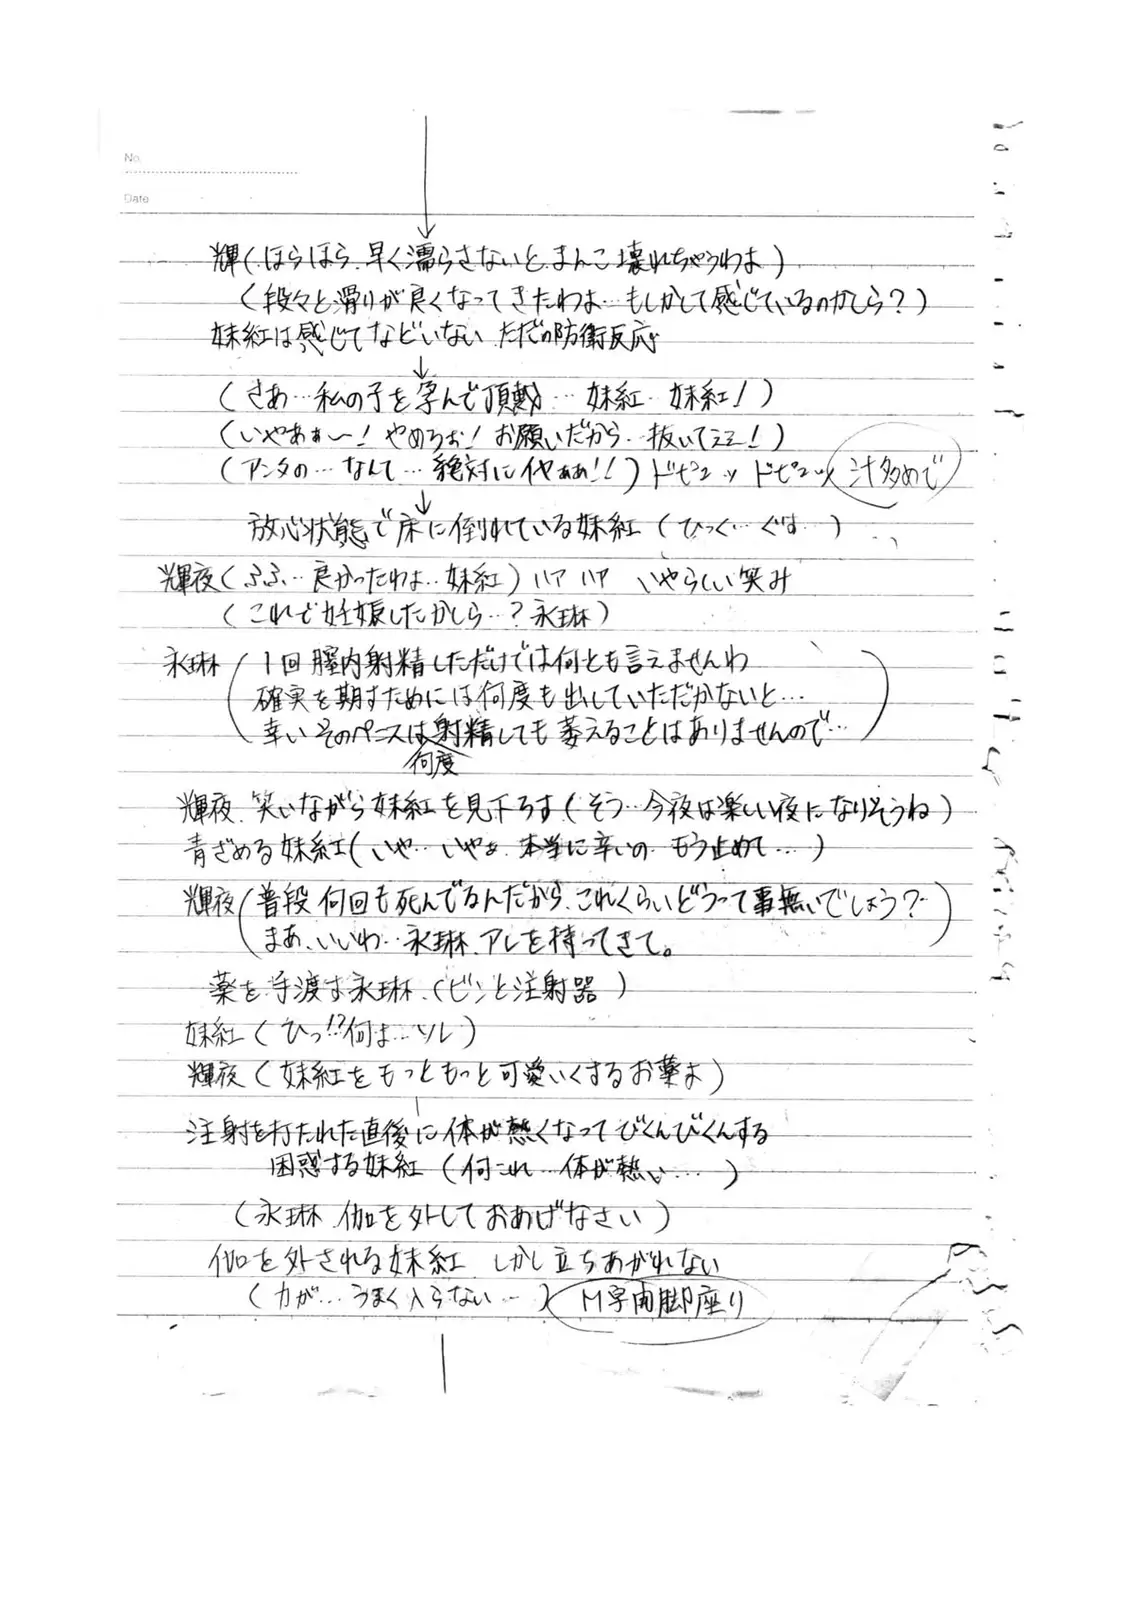 No.
Date
輝(ほらほら、早く濡らさないと、まんこ壊れちゃうわよ)
(段々と滑りが良くなってきたわよ…もしかして感じているのかしら?)
妹紅は感じてなどいない ただの防衛反応
(さあ…私の子を孕んで頂戴…妹紅…妹紅!)
(いやあぁ〜!やめろぉ!お願いだから…抜いてぇぇ!)
(アンタの…なんて…絶対にイヤぁぁ!!)ドピュッ ドピュッ 汁多めで
放心状態で床に倒れている妹紅(ひっく…ぐす…)
輝夜(ふふ…良かったわよ…妹紅)ハァ ハァ いやらしい笑み
(これで妊娠したかしら…?永琳)
永琳(1回膣内射精しただけでは何とも言えませんわ
確実を期すためには何度も出していただかないと…
幸いそのペニスは射精しても萎えることはありませんので…)
何度
輝夜、笑いながら妹紅を見下ろす(そう…今夜は楽しい夜になりそうね)
青ざめる妹紅(いや…いやぁ、本当に辛いの、もう止めて…)
輝夜(普段何回も死んでるんだから、これくらいどうって事無いでしょう?
まあ、いいわ…永琳、アレを持ってきて。
薬を手渡す永琳、(ビンと注射器)
妹紅(ひっ!?何よ…ソレ)
輝夜(妹紅をもっともっと可愛いくするお薬よ)
注射を打たれた直後に体が熱くなってびくんびくんする
困惑する妹紅(何これ…体が熱い…)
(永琳、枷を外しておあげなさい)
枷を外される妹紅 しかし立ちあがれない
(力が…うまく入らない…) M字開脚座り